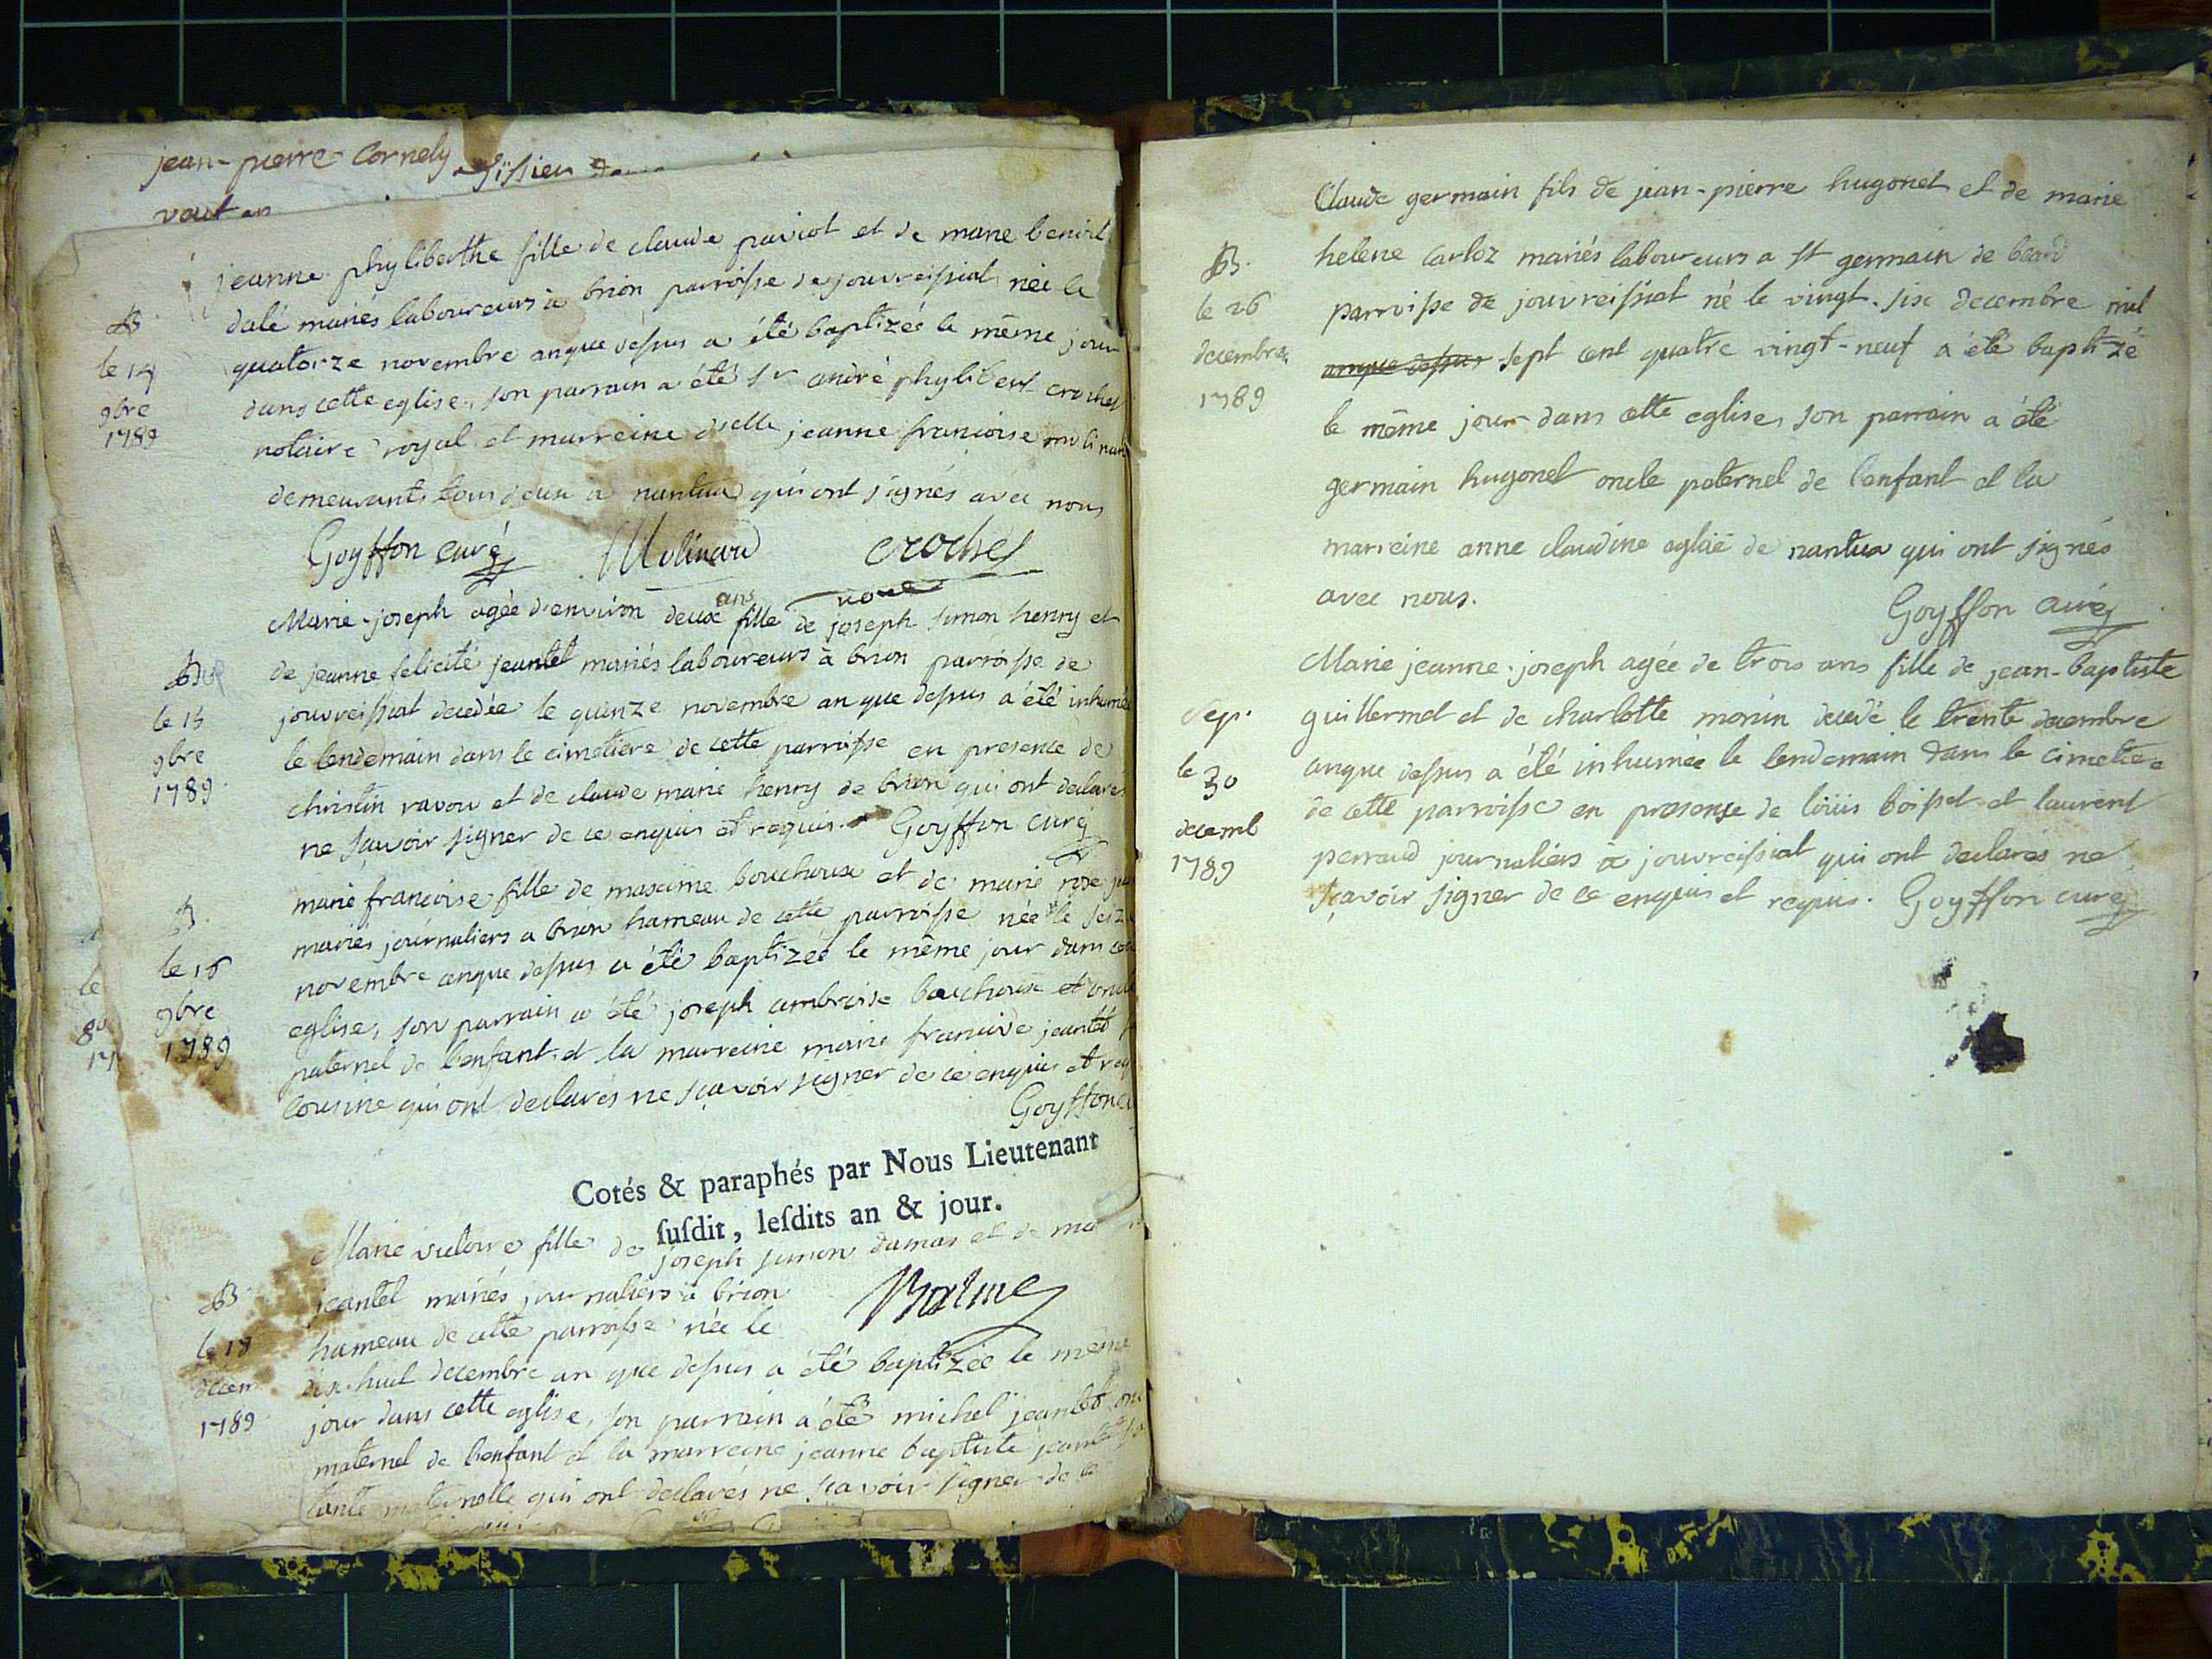 jean-pierre Cornely
vaut an
B.
le 14
9bre
1789
jeanne phyliberthe fille de claude paviot et de marie benoit
dalé mariés laboureurs à brion parroisse de jouvreissiat née le
quatorze novembre anque dessus a été baptizée le même jour
dans cette eglise, son parrain a été Sr andré phylibert crochet
notaire royal et marreine dlle jeanne francoise molinard
demeurants tous deux a nantua qui ont signés avec nous
Goyffon curé Molinard crochet
B
le 15
9bre
1789
Marie-joseph agée d'environ deux ans fille de joseph simon henry et
de jeanne felicité jeantet mariés laboureurs à brion parroisse de
jouvreissiat decedée le quinze novembre an que dessus a été inhumée
le lendemain dans le cimetiere de cette parroisse en presence de
christin ravou et de claude marie henry de brion qui ont declarés
ne sçavoir signer de ce enquis et requis. Goyffon curé
B.
le 16
9bre
1789
marie françoise fille de maxime bouchoux et de marie rose
mariés journaliers a brion hameau de cette parroisse née le seize
novembre anque dessus a été baptizée le même jour dans cette
eglise, son parrain a été joseph ambroise bouchoux et oncle
paternel de l'enfant et la marreine marie francoise jeantet
cousine qui ont declarés ne sçavoir signer de ce enquis et req
Goyffon cu
Cotés & paraphés par Nous Lieutenant
ſuſdit, leſdits an & jour.
Balme
B
le 18
decem
1789
Marie victoire fille de joseph simon dumas et de ma
jeantet mariés journaliers à brion
hameau de cette parroisse née le
dix-huit decembre an que dessus a été baptizée le même
jour dans cette eglise, son parrain a été michel jeantet
maternel de l'enfant et la marreine jeanne baptiste jeantet
tante maternelle qui ont declarés ne sçavoir signer de ce
B.
le 26
decembre
1789
Claude germain fils de jean-pierre hugonet et de marie
helene carloz mariés laboureurs a st germain de beard
parroisse de jouvreissiat né le vingt-six decembre mil
anque dessus sept cent quatre vingt-neuf a été baptizé
le même jour dans cette eglise, son parrain a été
germain hugonet oncle paternel de l'enfant et la
marreine anne claudine aglaé de nantua qui ont signés
avec nous. Goyffon curé
Sep.
le 30
decemb
1789
Marie jeanne-joseph agée de trois ans fille de jean-baptiste
guillermet et de charlotte monin decedé le trente decembre
anque dessus a été inhumée le lendemain dans le cimetiere
de cette parroisse en presense de loüis boisset et laurent
perraud journaliers à jouvreissiat qui ont declarés ne
sçavoir signer de ce enquis et requis. Goyffon curé